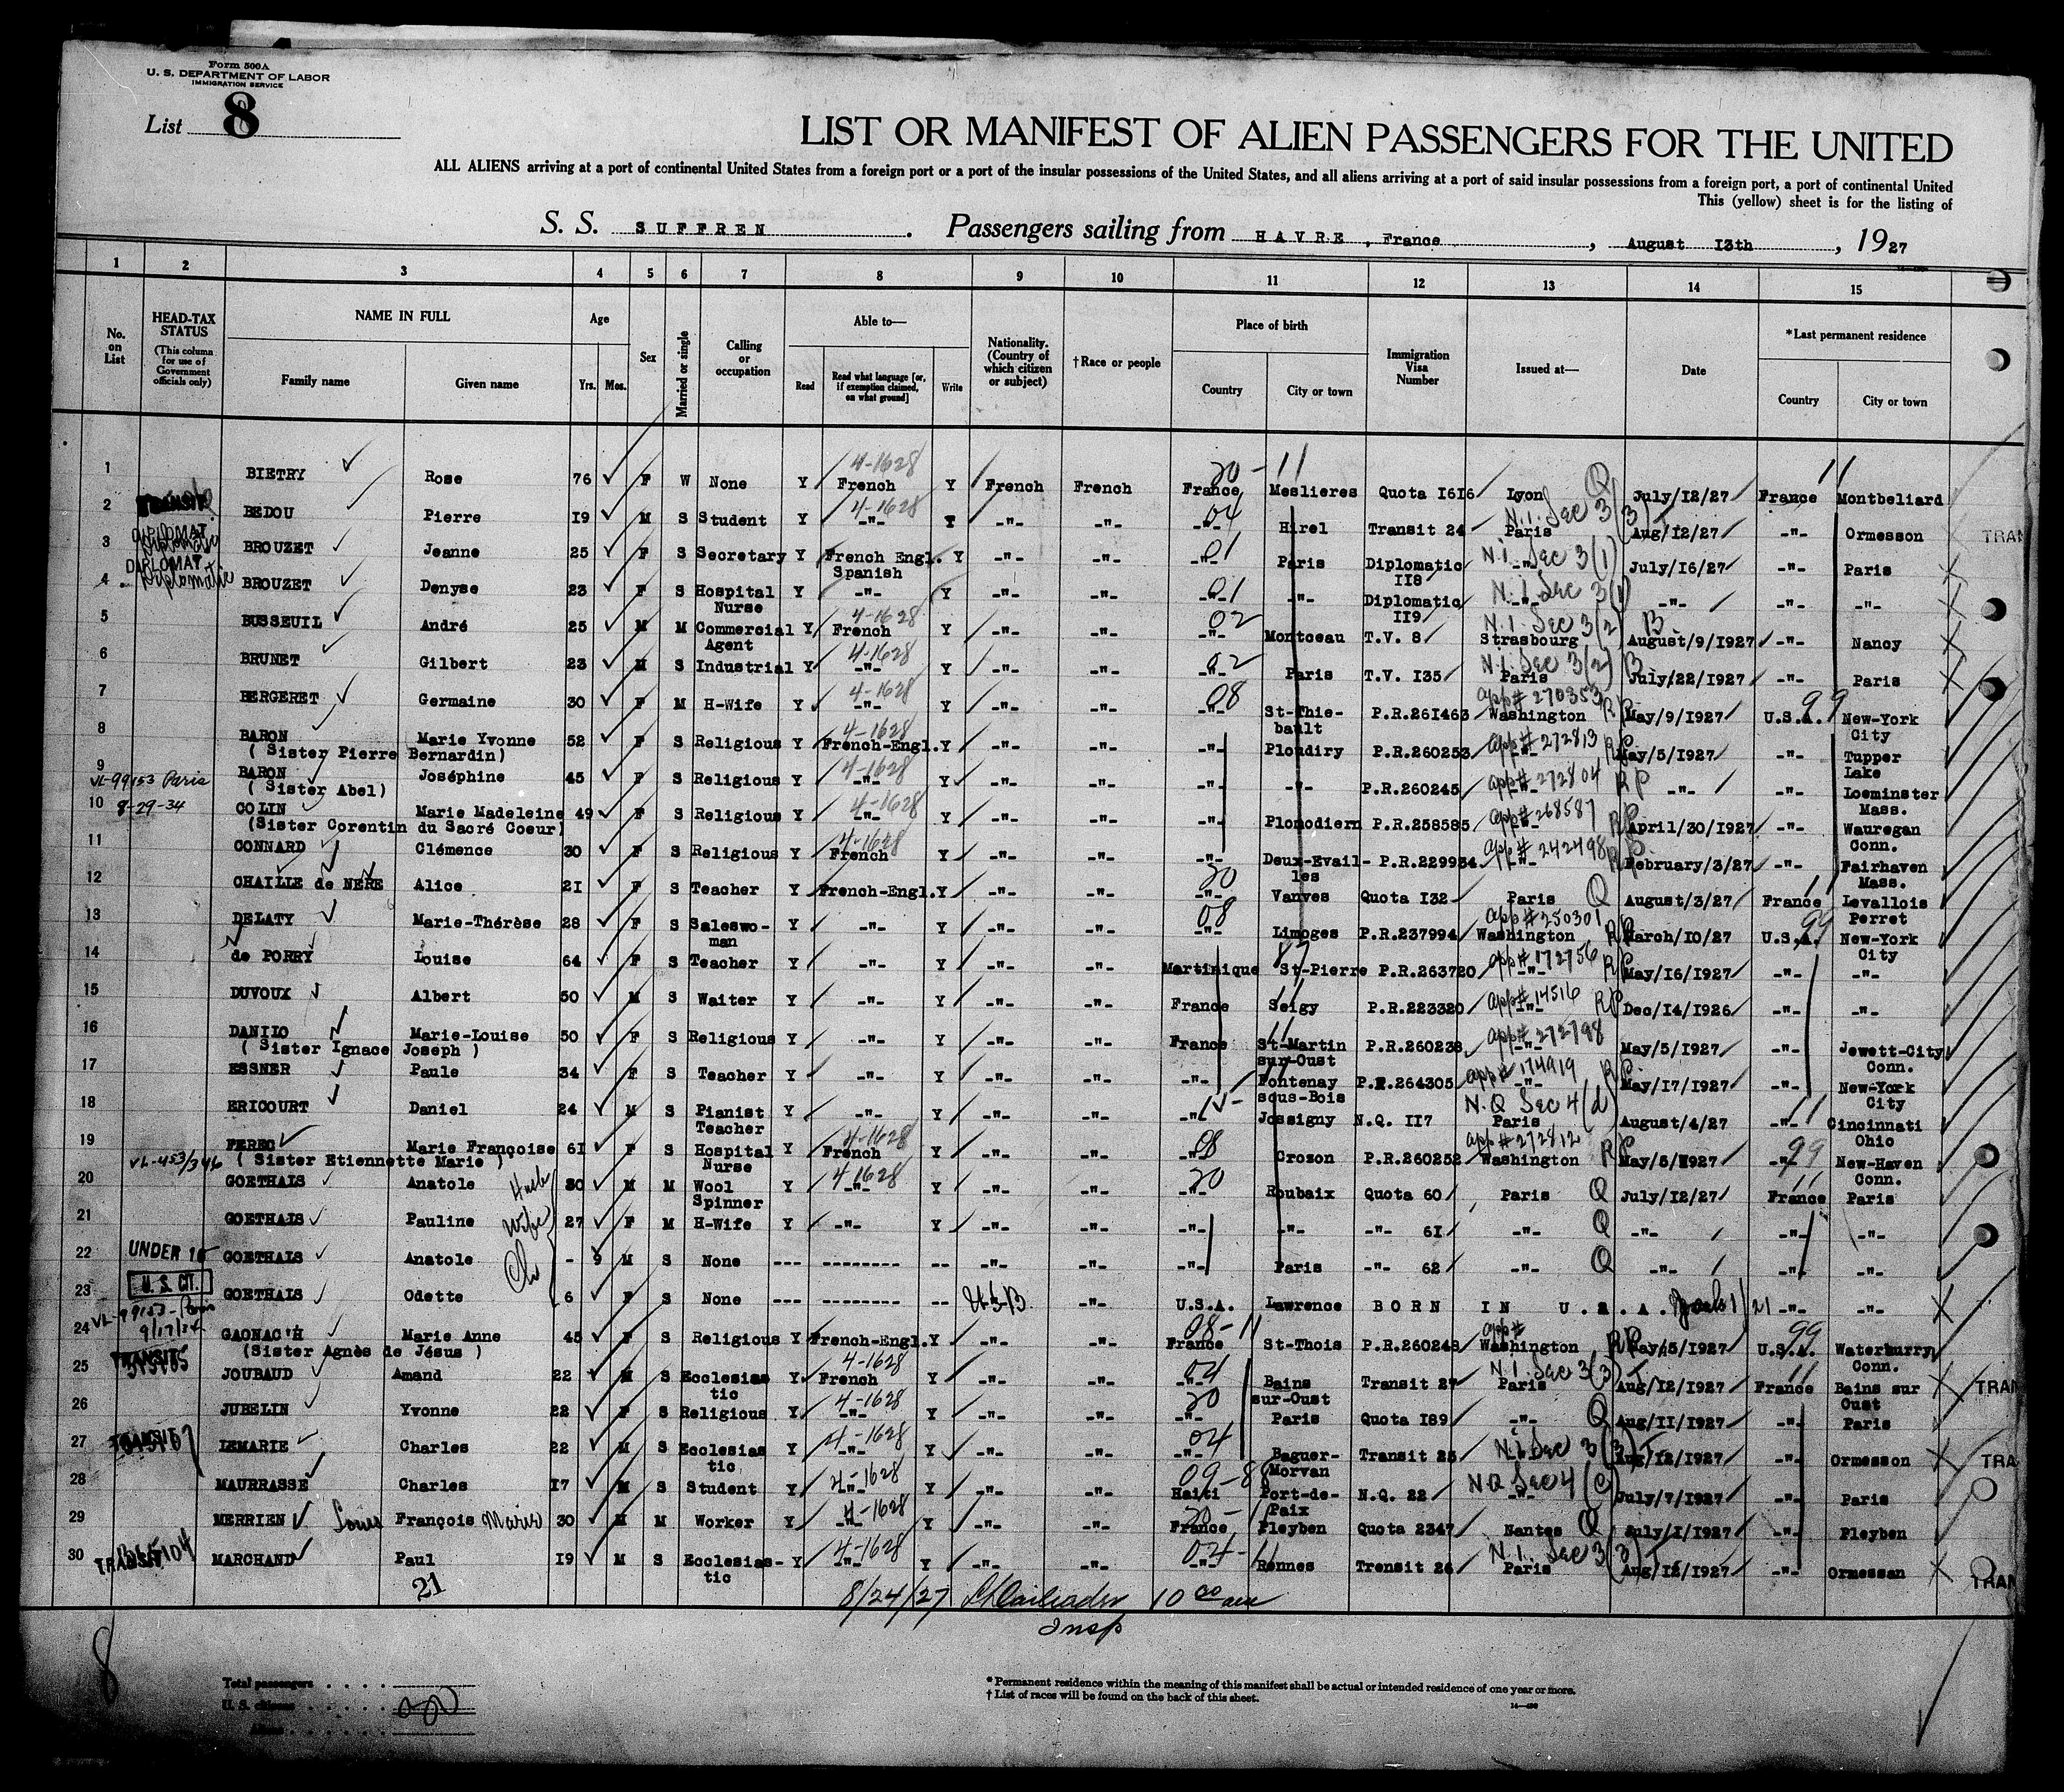 Form 500A
U. S. DEPARTMENT OF LABOR
IMMIGRATION SERVICE
List 8
LIST OR MANIFEST OF ALIEN PASSENGERS FOR THE UNITED
ALL ALIENS arriving at a port of continental United States from a foreign port or a port of the insular possessions of the United States, and all aliens arriving at a port of said insular possessions from a foreign port, a port of continental United
This (yellow) sheet is for the listing of
S. S. SUFFREN. Passengers sailing from HAVRE, France, August 13th, 1927
1 2 3 4 5 6 7 8 9 10 11 12 13 14 15
No. on List
HEAD-TAX STATUS
(This column for use of Government officials only)
NAME IN FULL
Family name Given name
Age
Yrs. Mos.
Sex
Married or single
Calling or occupation
Able to—
Read
Read what language [or, if exemption claimed, on what ground]
Write
Nationality. (Country of which citizen or subject)
†Race or people
Place of birth
Country City or town
Immigration Visa Number
Issued at—
Date
*Last permanent residence
Country City or town
1 BIETRY Rose 76 F W None Y 4-1628 French Y French French 20-11 France Meslieres Quota 1616 Lyon Q July/12/27 11 France Montbeliard
2 TRANSIT BEDOU Pierre 19 M S Student Y 4-1628 -"- Y -"- -"- 04 -"- Hirel Transit 24 N.I. Sec 3(3) Paris Aug/12/27 -"- Ormesson TRAN
3 DIPLOMAT Diplomatic BROUZET Jeanne 25 F S Secretary Y French Engl. Spanish Y -"- -"- 01 -"- Paris Diplomatic 118 N.I. Sec 3(1) -"- July/16/27 -"- Paris
4 DIPLOMAT Diplomatic BROUZET Denyse 23 F S Hospital Nurse Y -"- Y -"- -"- 01 -"- -"- Diplomatic 119 N.I. Sec 3(1) -"- -"- -"- -"-
5 BUSSEUIL André 25 M M Commercial Agent Y 4-1628 French Y -"- -"- 02 -"- Montceau T.V. 8 N.I. Sec 3(2) B Strasbourg August/9/1927 -"- Nancy
6 BRUNET Gilbert 23 M S Industrial Y 4-1628 -"- Y -"- -"- 02 -"- Paris T.V. 135 N.I. Sec 3(2) B Paris July/22/1927 -"- Paris
7 BERGERET Germaine 30 F M H-Wife Y 4-1628 -"- Y -"- -"- 08 -"- St-Thie-bault P.R.261463 app# 270353 Washington RP May/9/1927 99 U.S.A. New-York City
8 BARON Marie Yvonne 52 F S Religious Y 4-1628 French-Engl. Y -"- -"- -"- Ploudiry P.R.260253 app# 272813 -"- RP May/5/1927 -"- Tupper Lake
( Sister Pierre Bernardin)
9 VL-99153 Paris BARON Joséphine 45 F S Religious Y 4-1628 -"- Y -"- -"- -"- -"- P.R.260245 app# 272804 -"- RP -"- -"- Loeminster Mass.
( Sister Abel)
10 8-29-34 COLIN Marie Madeleine 49 F S Religious Y 4-1628 -"- Y -"- -"- -"- Plomodiern P.R.258585 app# 268587 -"- RP April/30/1927 -"- Wauregan Conn.
(Sister Corentin du Sacré Coeur)
11 CONNARD Clémence 30 F S Religious Y 4-1628 French Y -"- -"- -"- Deux-Evail-les P.R.229934 app# 242498 -"- RP February/3/27 -"- Fairhaven Mass.
12 CHAILLE de NERE Alice 21 F S Teacher Y French-Engl. Y -"- -"- 20 -"- Vanves Quota 132 Paris Q August/3/27 11 France Levallois Perret
13 DELATY Marie-Thérèse 28 F S Saleswo-man Y -"- Y -"- -"- 08 -"- Limoges P.R.237994 app# 250301 Washington RP March/10/27 99 U.S.A. New-York City
14 de PORRY Louise 64 F S Teacher Y -"- Y -"- -"- Martinique 87 St-Pierre P.R.263720 app# 172756 -"- RP May/16/1927 -"- -"-
15 DUVOUX Albert 50 M S Waiter Y -"- Y -"- -"- France 11 Seigy P.R.223320 app# 14516 -"- RP Dec/14/1926 -"- -"-
16 DANILO Marie-Louise 50 F S Religious Y -"- Y -"- -"- France 11 St-Martin sur-Oust P.R.260238 app# 272798 -"- May/5/1927 -"- Jewett-City Conn.
( Sister Ignace Joseph )
17 ESSNER Paule 34 F S Teacher Y -"- Y -"- -"- -"- Fontenay sous-Bois P.R.264305 app# 174919 -"- RP May/17/1927 -"- New-York City
18 ERICOURT Daniel 24 M S Pianist Teacher Y -"- Y -"- -"- -"- Jossigny N.Q. 117 N.Q Sec 4(d) Paris August/4/27 11 -"- Cincinnati Ohio
19 VL-453/346 FEREC Marie Françoise 61 F S Hospital Nurse Y 4-1628 French Y -"- -"- 08 -"- Crozon P.R.260252 app# 272812 Washington RP May/5/1927 99 -"- New-Haven Conn.
( Sister Etiennette Marie )
20 GOETHALS Anatole Husb 30 M M Wool Spinner Y 4-1628 -"- Y -"- -"- 20 -"- Roubaix Quota 60 Paris Q July/12/27 11 France Paris
21 GOETHALS Pauline Wife 27 F M H-Wife Y -"- Y -"- -"- -"- -"- -"- 61 -"- Q -"- -"- -"-
22 UNDER 16 GOETHALS Anatole Ch - 9 M S None --- -------- -- -"- -"- -"- Paris -"- 62 -"- Q -"- -"- -"-
23 U.S. CIT. GOETHALS Odette 6 F S None --- -------- -- USB -"- U.S.A. Lawrence BORN IN U.S.A. 21 -"- -"-
24 VL-99153-Paris 9/17/34 GAONAC'H Marie Anne 45 F S Religious Y French-Engl. Y -"- -"- 08-11 France St-Thois P.R.260248 app# Washington RP May/5/1927 99 U.S.A. Waterburry Conn.
(Sister Agnès de Jésus )
25 TRANSIT JOUBAUD Amand 22 M S Ecclesias tic Y 4-1628 French Y -"- -"- 04 -"- Bains sur-Oust Transit 27 N.I. Sec 3(3) Paris Aug/12/1927 11 France Bains sur Oust TRAN
26 JUBELIN Yvonne 22 F S Religious Y 4-1628 -"- Y -"- -"- 20 -"- Paris Quota 189 -"- Q Aug/11/1927 -"- Paris
27 TRANSIT LEMARIE Charles 22 M S Ecclesias tic Y 4-1628 -"- Y -"- -"- 04 -"- Baguer-Morvan Transit 25 N.I. Sec 3(3) Aug/12/1927 -"- Ormesson TRA
28 MAURRASSE Charles 17 M S Student Y 4-1628 -"- Y -"- -"- 09-8 Haiti Port-de-Paix N.Q. 22 NQ Sec 4(c) -"- July/7/1927 -"- Paris
29 MERRIEN Louis François Marie 30 M M Worker Y 4-1628 -"- Y -"- -"- 20- France Pleyben Quota 2347 Nantes Q July/1/1927 -"- Pleyben
30 TRANSIT MARCHAND Paul 19 M S Ecclesias-tic Y 4-1628 -"- Y -"- -"- 04-11 -"- Rennes Transit 26 N.I. Sec 3(3) Paris Aug/12/1927 -"- Ormessan TRAN
21
8/24/27 10 00 am
Insp
8
Total passengers
U. S. citizens
Aliens
*Permanent residence within the meaning of this manifest shall be actual or intended residence of one year or more.
†List of races will be found on the back of this sheet.